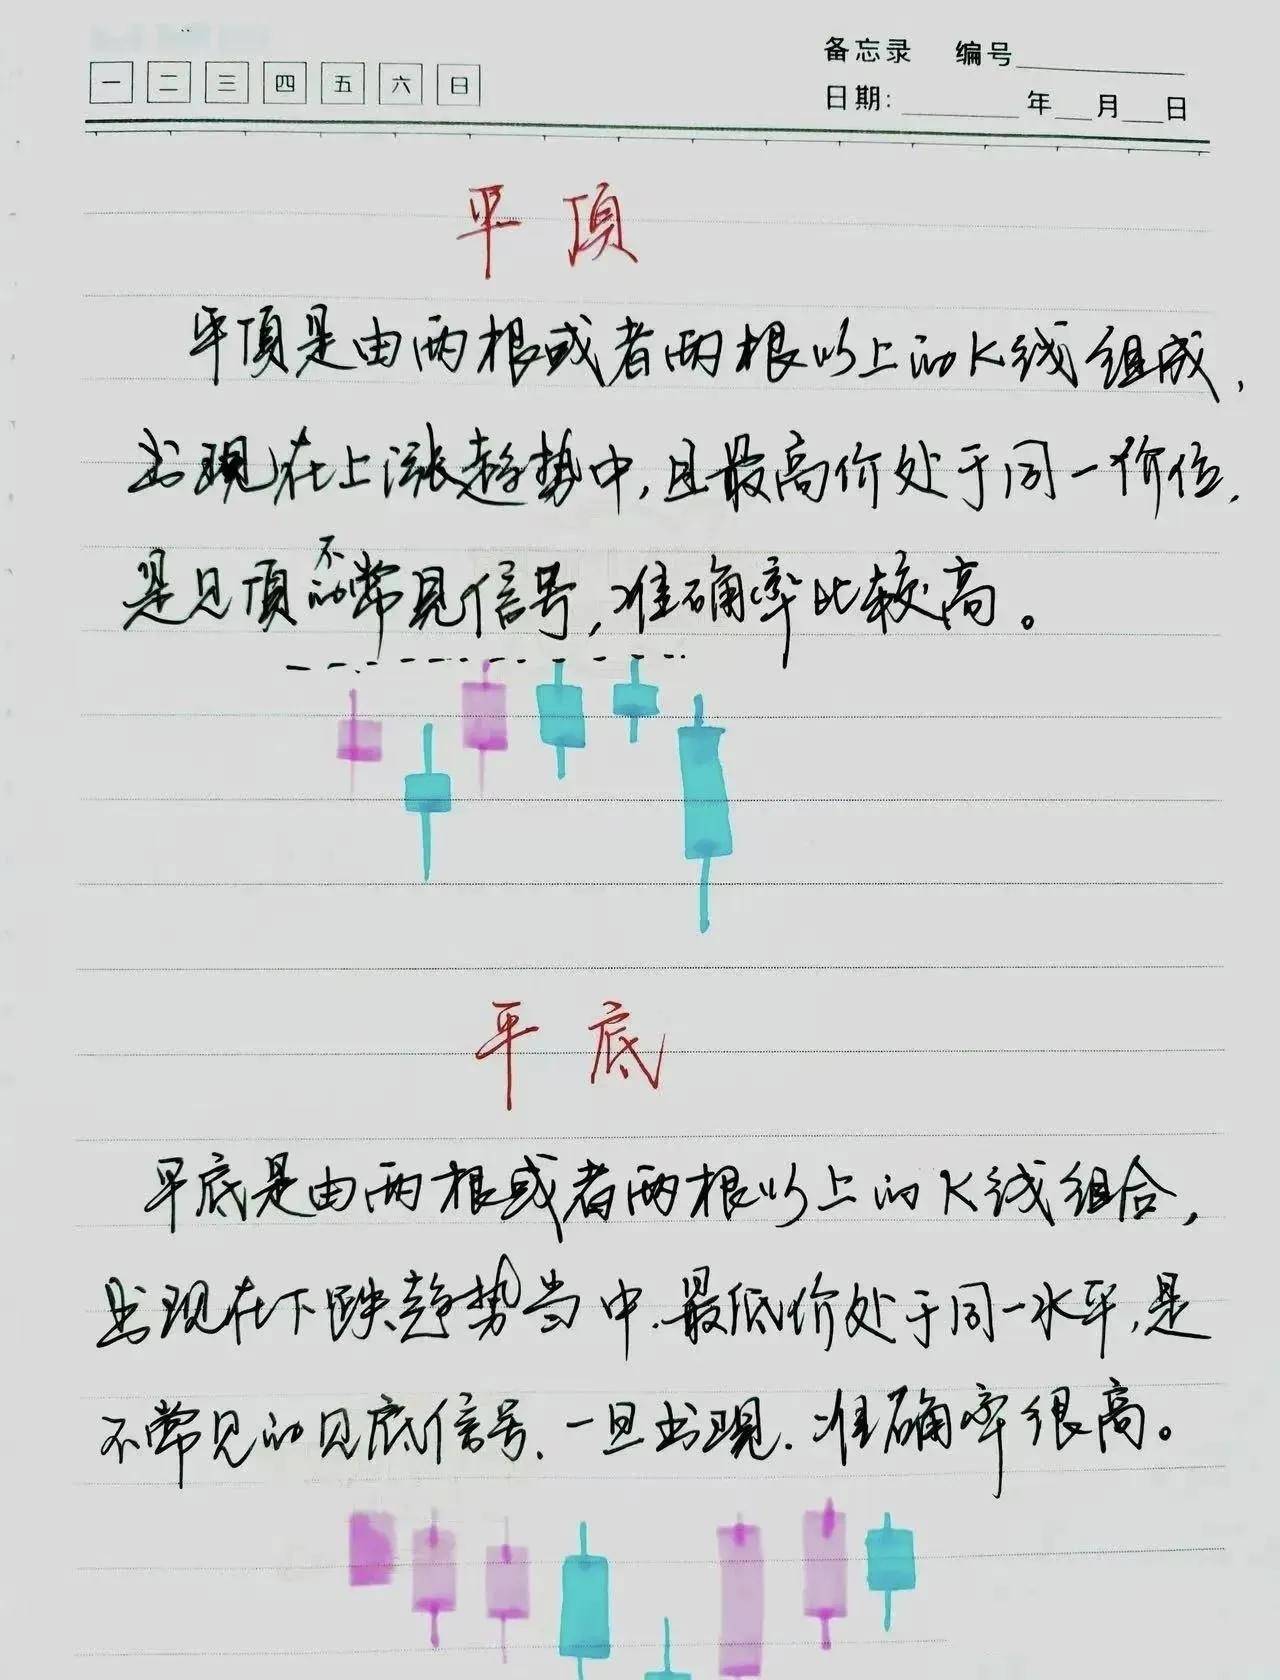 备忘录 编号
一 二 三 四 五 六 日
日期: 年 月 日
平頂
平頂是由两根或者两根以上的K线组成,
出现在上涨趋势中,且最高价处于同一价位,
是见頂的不常见信号,准确率比较高。
平底
平底是由两根或者两根以上的K线组合,
出现在下跌趋势当中.最低价处于同一水平,是
不常见的见底信号.一旦出现.准确率很高。